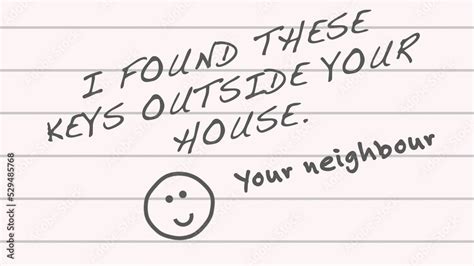 I FOUND THESE
KEYS OUTSIDE YOUR
HOUSE.
Your neighbour
Adobe Stock | #529485768
Adobe Stock